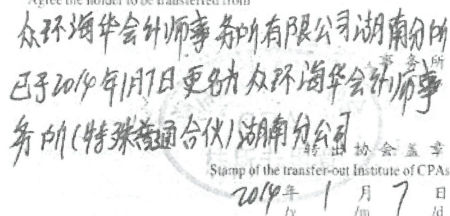 Agree the holder to be transferred from
众环海华会计师事务所有限公司湖南分所
事务所
已于2014年1月7日更名为众环海华会计师事
务所(特殊普通合伙)湖南分公司
转出协会盖章
Stamp of the transfer-out Institute of CPAs
2014年 1月 7日
/y /m /d